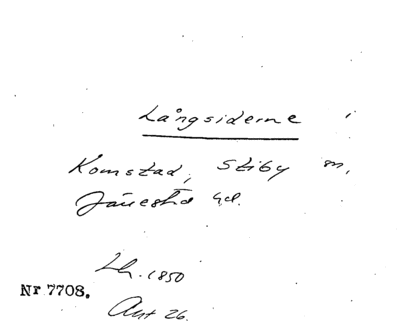 Långsiderne i
Komstad, Stiby sn,
Järrestad hd.
Lh. 1850
Nr 7708.
Akt 26.